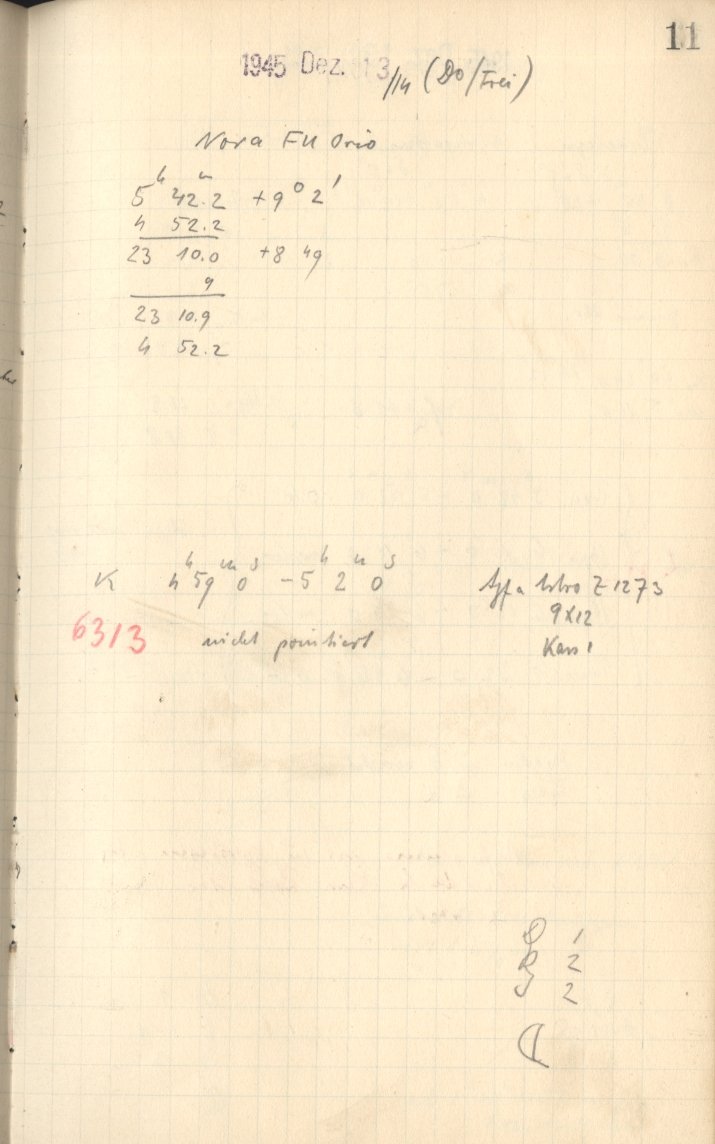 11
1945 Dez. 13/14 (Do/Frei)
Nova FU Orio
5ʰ 42.2ᵐ +9° 2'
4 52.2
23 10.0 +8 49
9
23 10.9
4 52.2
K 4ʰ 59ᵐ 0ˢ -5ʰ 2ᵐ 0ˢ Agfa Astro Z 1273
9x12
6313 nicht pointiert Kass 1
1
R 2
2